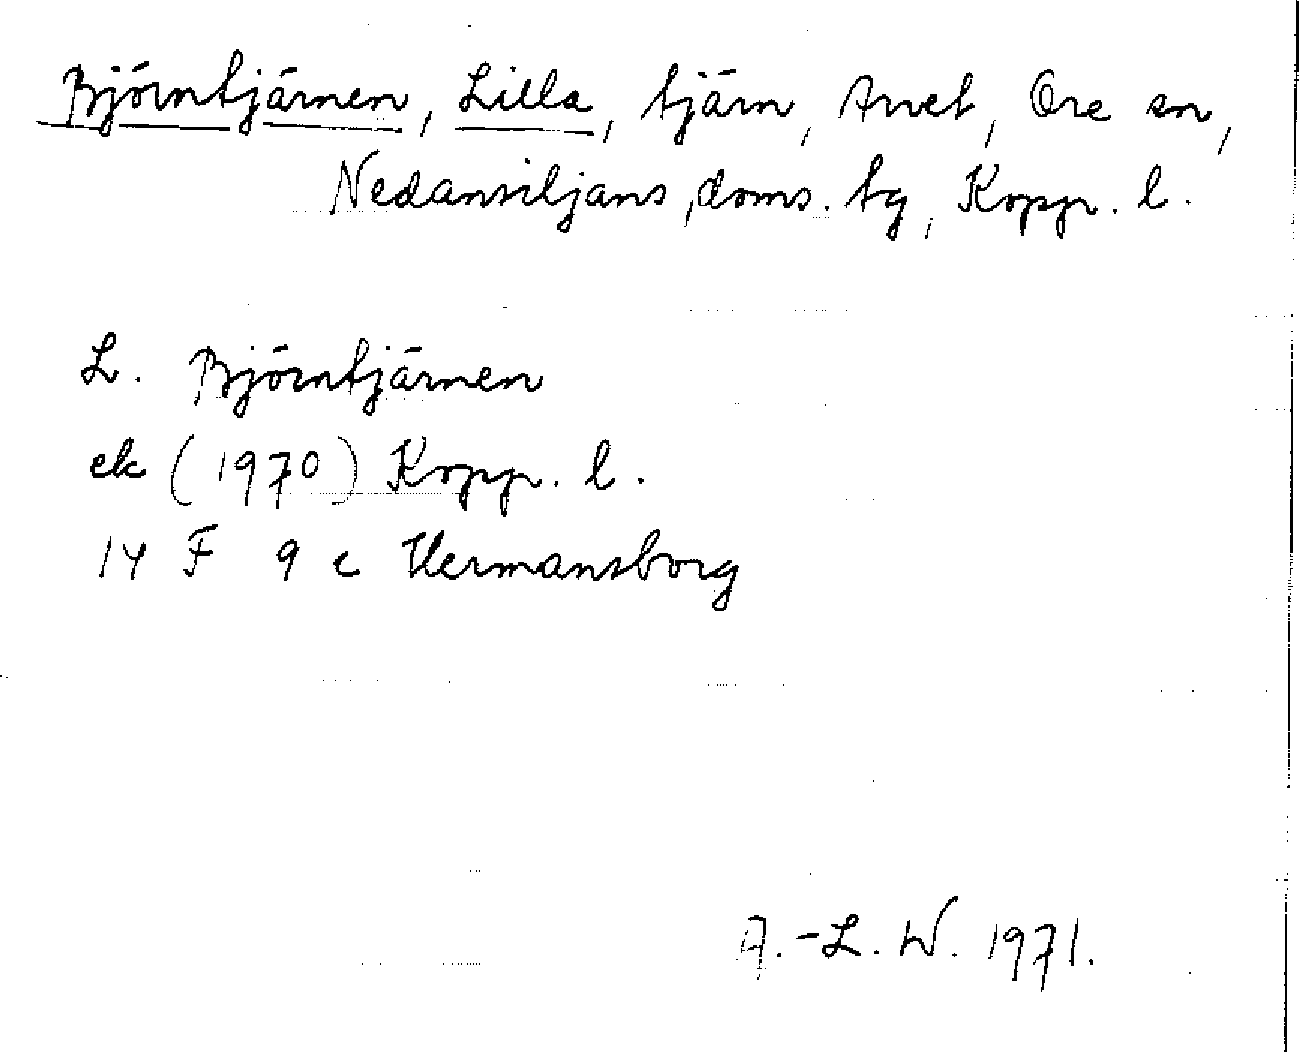 Björntjärnen, Lilla, tjärn, Arvet, Ore sn,
Nedansiljans, doms. tg, Kopp. l.
L. Björntjärnen
ek (1970) Kopp. l.
14 F 9 c Hermansborg
A.-L. W. 1971.